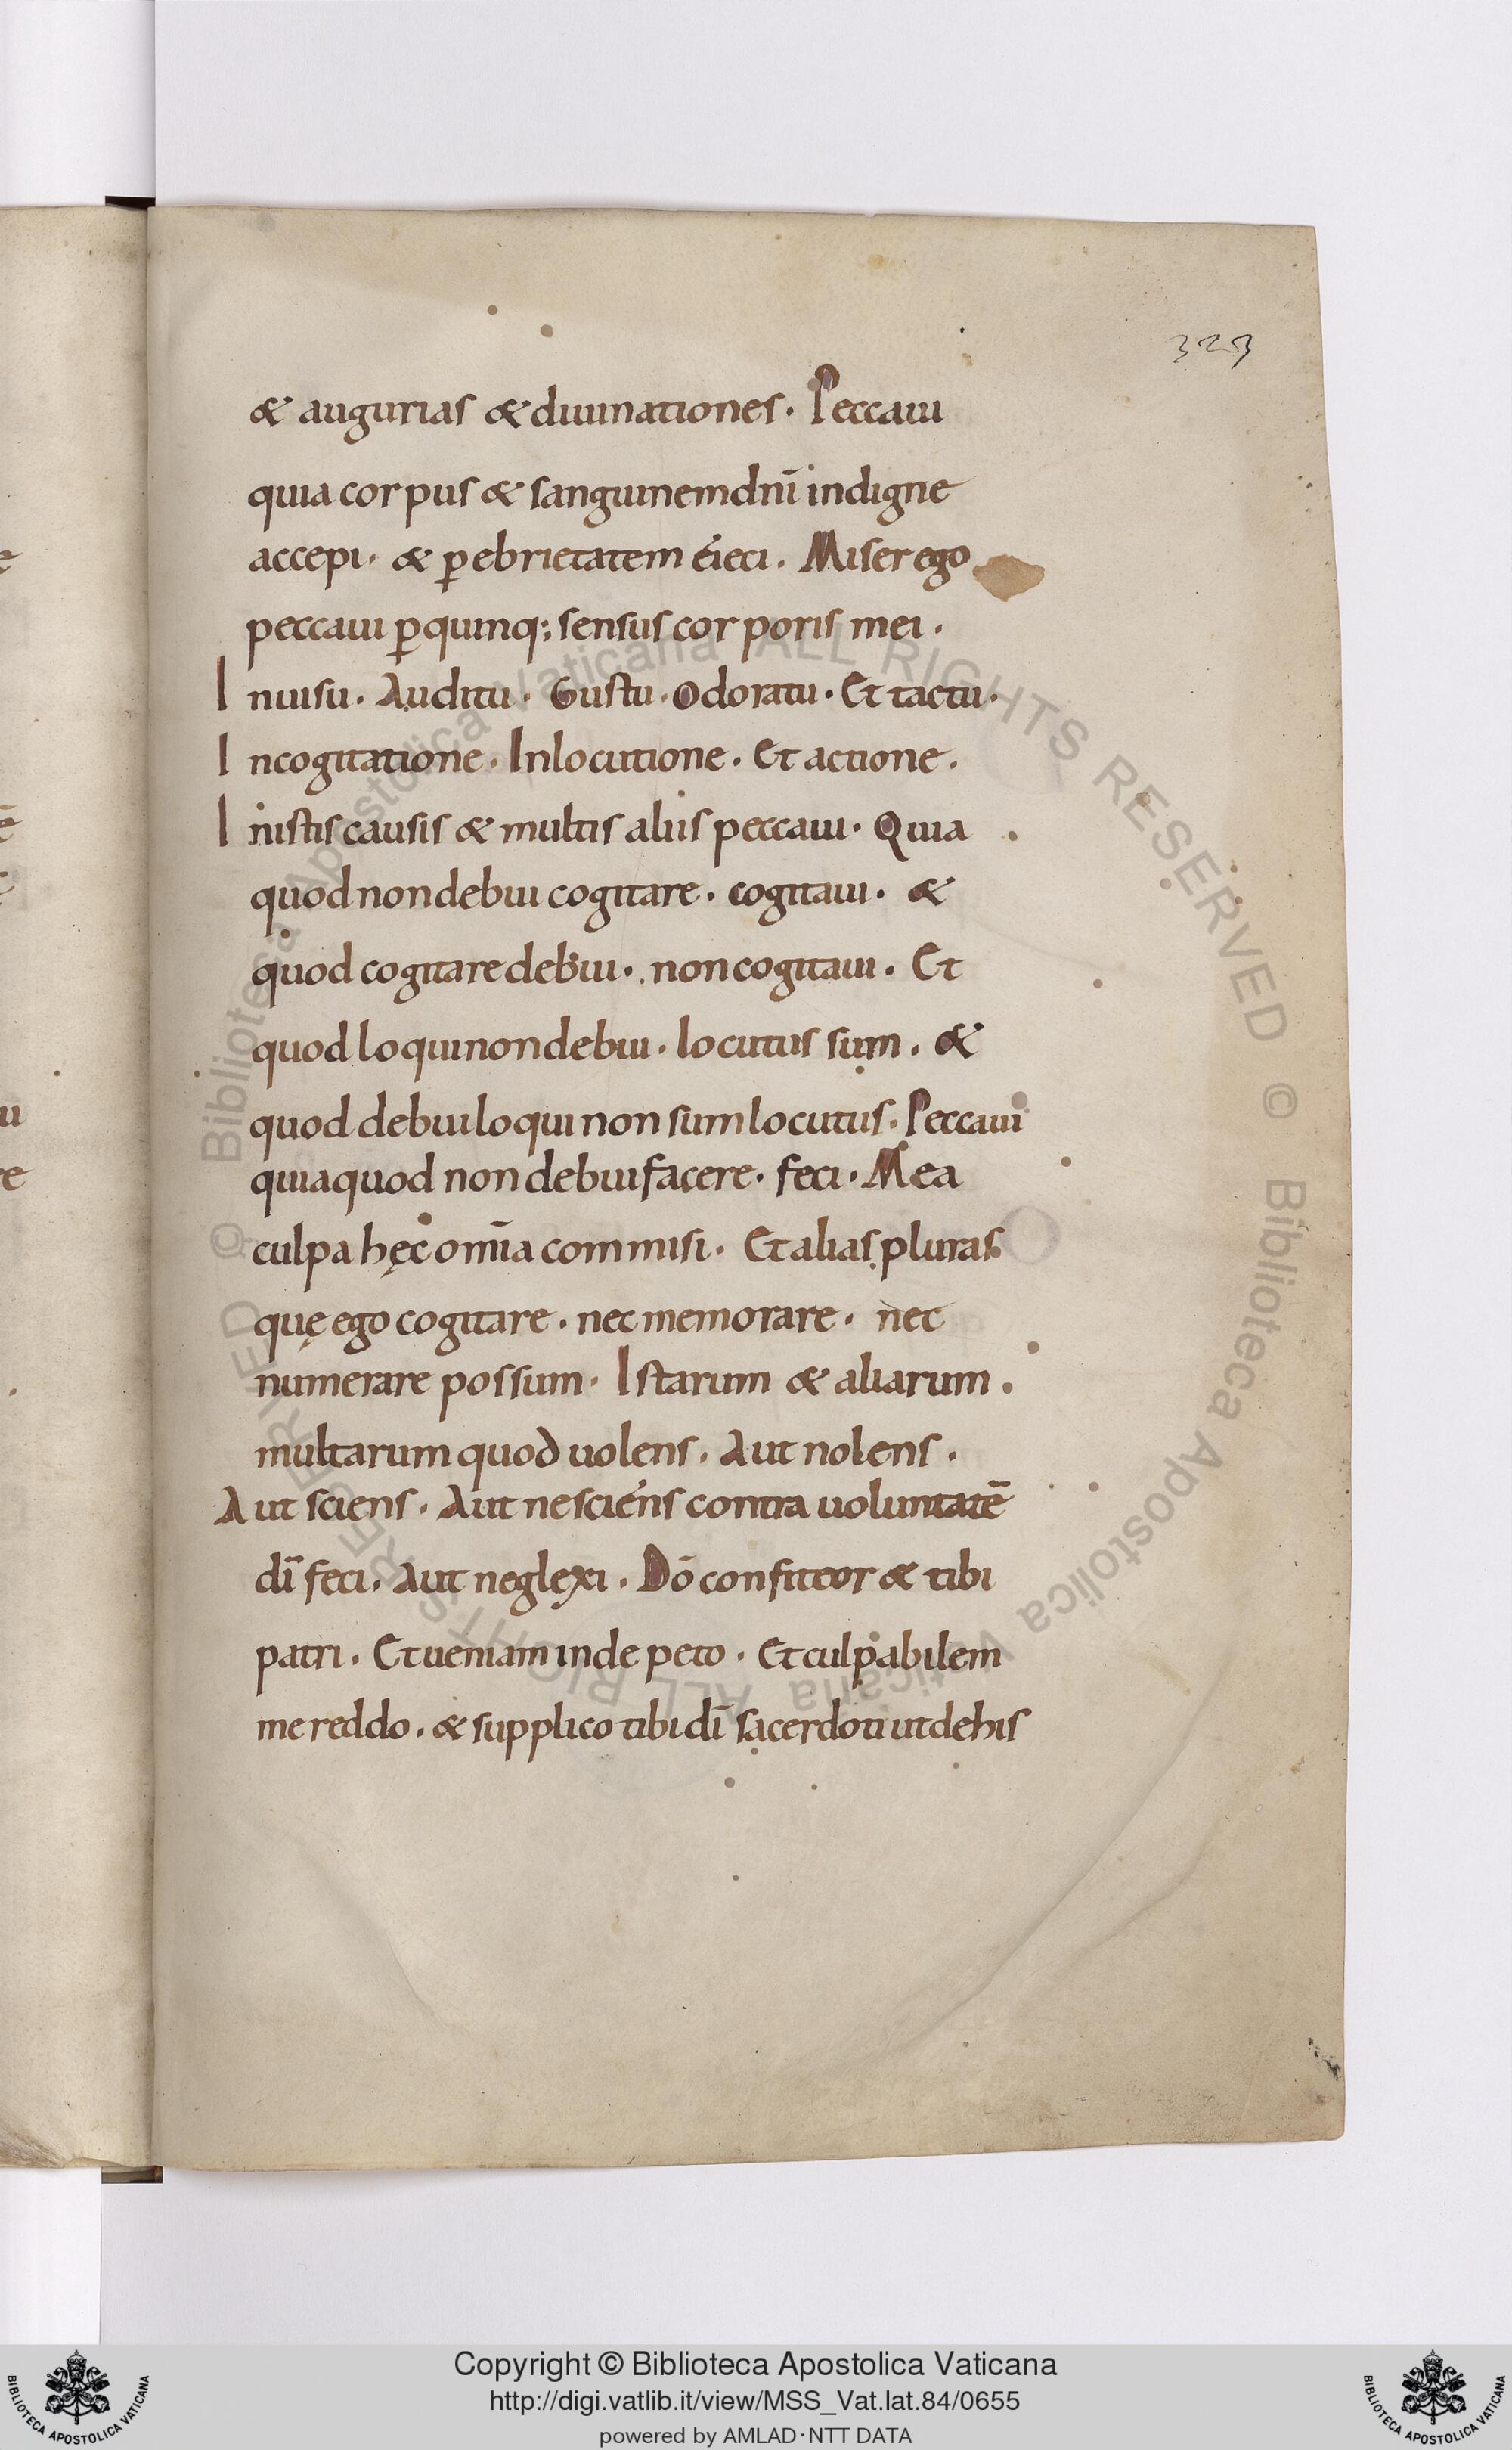 323
& augurias & diuinationes. Peccaui
quia corpus & sanguinem dnī indigne
accepi. & p̱ ebrietatem eieci. Miser ego
peccaui p̱ quinq; sensus corporis mei.
In uisu. Auditu. Gustu. Odoratu. Et tactu.
In cogitatione. In locutione. Et actione.
In istis causis & multis aliis peccaui. Quia
quod non debui cogitare. cogitaui. &
quod cogitare debui. non cogitaui. Et
quod loqui non debui. locutus sum. &
quod debui loqui non sum locutus. Peccaui
quia quod non debui facere. feci. Mea
culpa hęc om̄ia commisi. Et alias pluras
quę ego cogitare. nec memorare. nec
numerare possum. Istarum & aliarum.
multarum quod uolens. Aut nolens.
Aut sciens. Aut nesciens contra uoluntatē
dī feci. Aut neglexi. Dō confiteor & tibi
patri. Et ueniam inde peto. Et culpabilem
me reddo. & supplico tibi dī sacerdoti ut de his
© Biblioteca Apostolica Vaticana ALL RIGHTS RESERVED
© Biblioteca Apostolica Vaticana ALL RIGHTS RESERVED
Copyright © Biblioteca Apostolica Vaticana
http://digi.vatlib.it/view/MSS_Vat.lat.84/0655
powered by AMLAD·NTT DATA
BIBLIOTECA APOSTOLICA VATICANA
BIBLIOTECA APOSTOLICA VATICANA